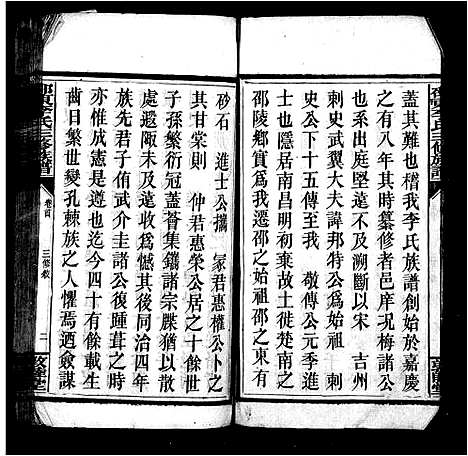 蓋其難也稽我李氏族譜創始於嘉慶
二十有八年其時纂修者邑庠虎尾梅譜公
也系出庭堅遠不及溯斷以宋 吉州
刺史諱邦特公爲始祖 刺
史公下十五傳至我 敬傳公元季進
士居吉昌明初棄故土徙楚南之
邵陵鄉賞爲我遷邵之始祖邵之東有
砂石 進士公攜 冢君惠權公卜之
其甘棠則 仲君惠榮公居之十餘世
子孫繁衍冠蓋薈集鑴諸宗牒猶以散
處遐陬未遠收爲憾其後同治四年
族先君子侑虎尾諸公復踵葺之時
亦惟成憲是遵也迄今四十有餘載生
齒日繁世變孔棘族之人懼焉迺僉謀
卷首
三修敘
二